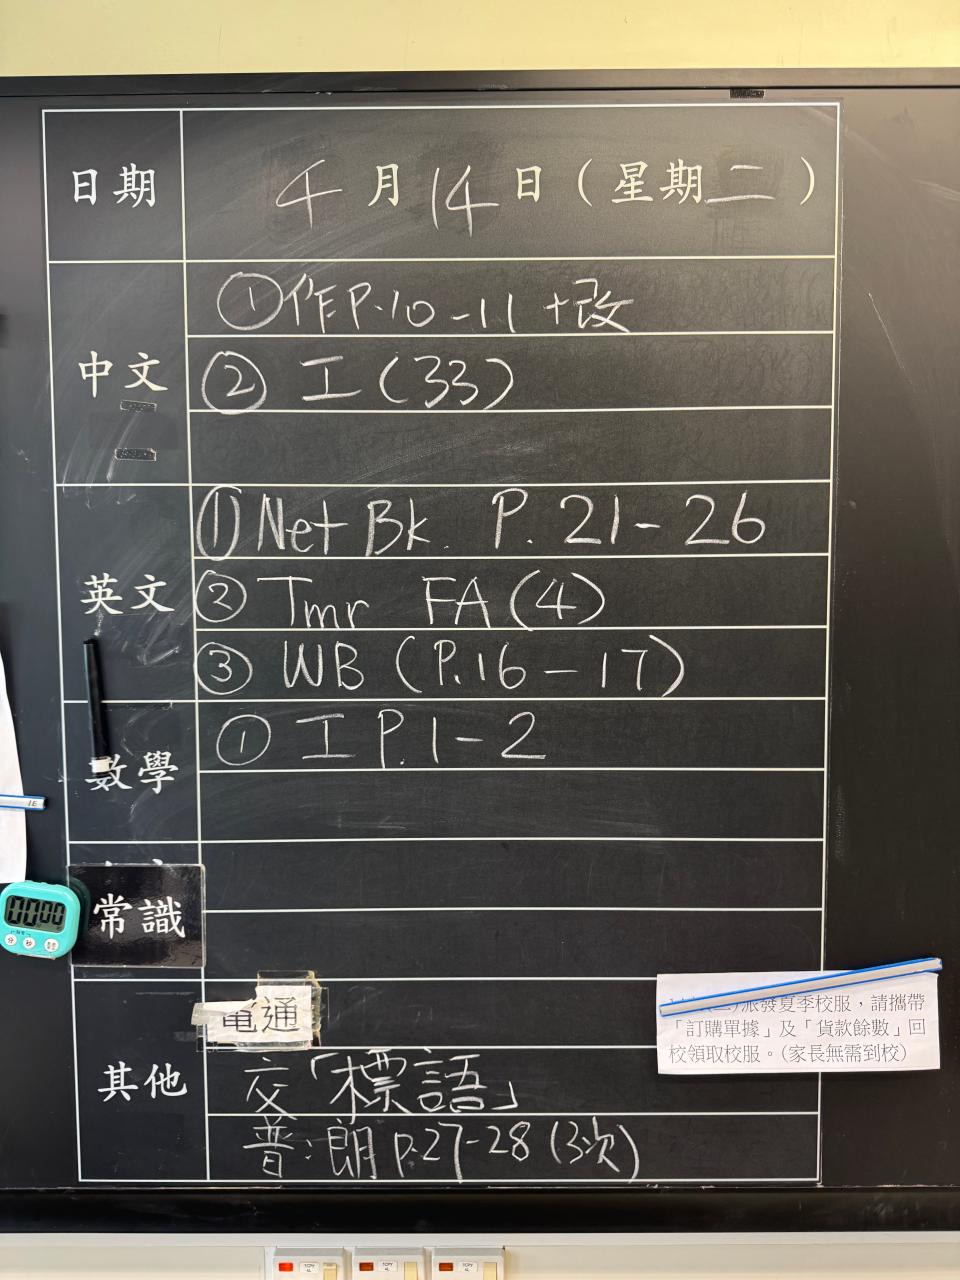 日期 4月14日（星期二）
中文
①作P.10-11+改
②工(33)
英文
①Net Bk. P.21-26
②Tmr FA(4)
③WB(P.16-17)
數學
①工P.1-2
常識
其他
電通
交「標語」
普:朗p.27-28(3次)
派發夏季校服，請攜帶
「訂購單據」及「貨款餘數」回
校領取校服。(家長無需到校)
00:00
分 秒
1E